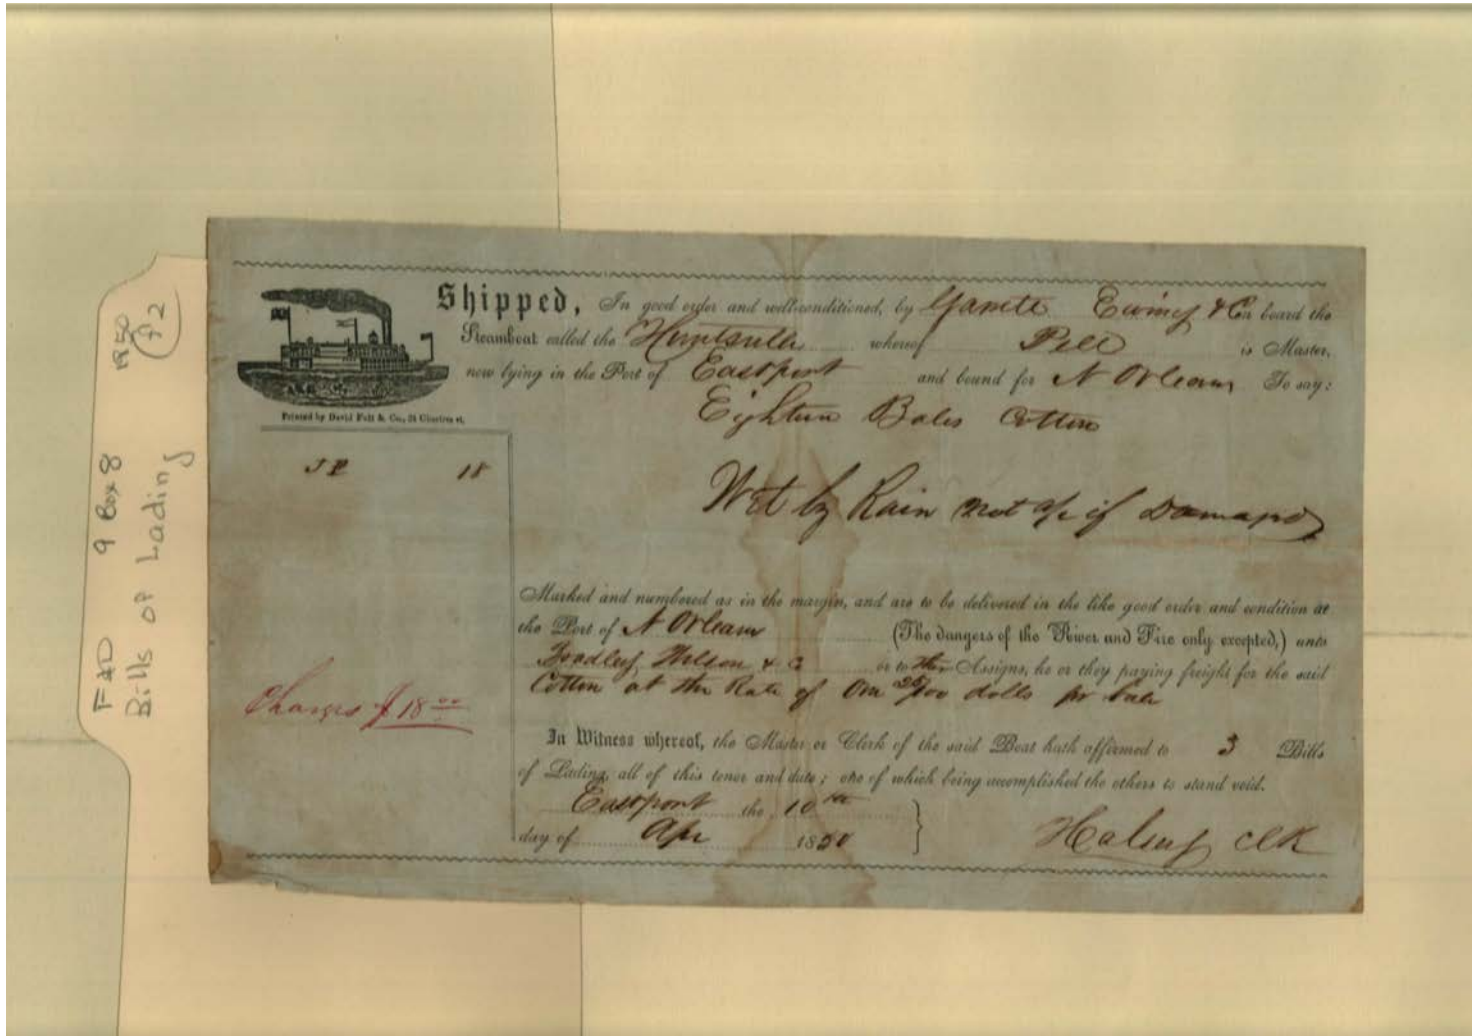 1850
(12)
F&D 9 Box 8
Bills of Lading
Shipped, In good order and well-conditioned, by Ewing & Co on board the
Steamboat called the Huntsville whereof Pell is Master,
now lying in the Port of Eastport and bound for N Orleans To say:
Printed by David Felt & Co., 24 Chartres st.
Eighteen Bales Cotton
18
Wet by Rain not a/c if Damaged
Marked and numbered as in the margin, and are to be delivered in the like good order and condition at
the Port of N Orleans (The dangers of the River and Fire only excepted,) unto
Wilson & C or to their Assigns, he or they paying freight for the said
Cotton at the Rate of One 25/100 dolls pr bale
Charges $18.00
In Witness whereof, the Master or Clerk of the said Boat hath affirmed to 3 Bills
of Lading, all of this tenor and date; one of which being accomplished the others to stand void.
Eastport the 10th
day of Apr 1850
Halsey Clk